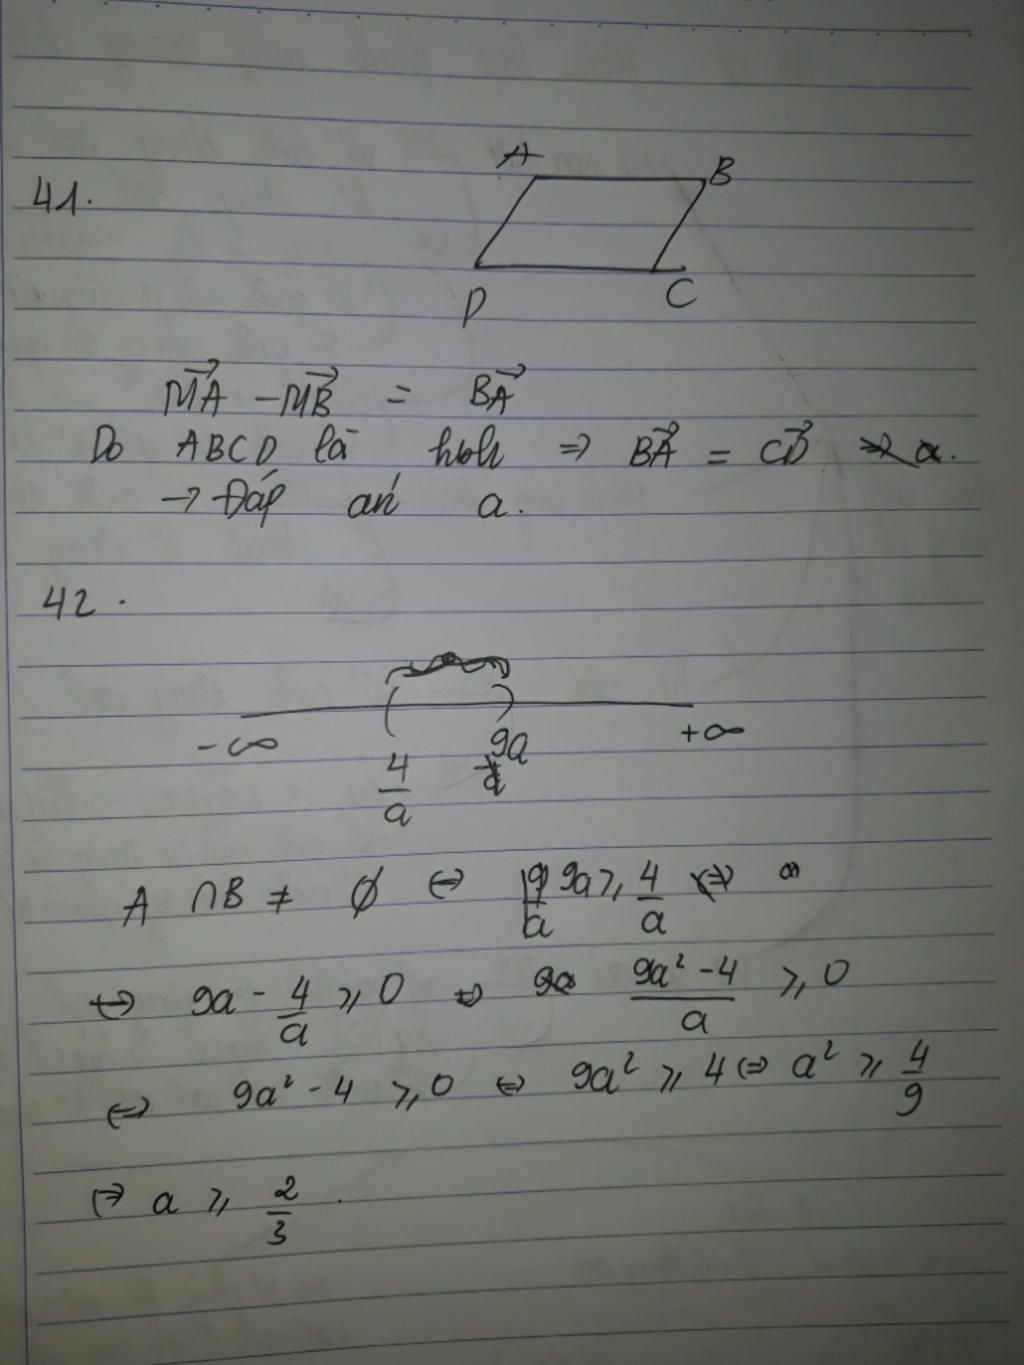 41.
A B
D C
MA→ - MB→ = BA→
Do ABCD là hbh ⇒ BA→ = CD→
→ Đáp án a.
42.
-∞ 4/a 9a +∞
A ∩ B ≠ ∅ ⇔ 9a ≥ 4/a ⇔
⇔ 9a - 4/a ≥ 0 ⇔ (9a² - 4)/a ≥ 0
⇔ 9a² - 4 ≥ 0 ⇔ 9a² ≥ 4 ⇔ a² ≥ 4/9
⇔ a ≥ 2/3.